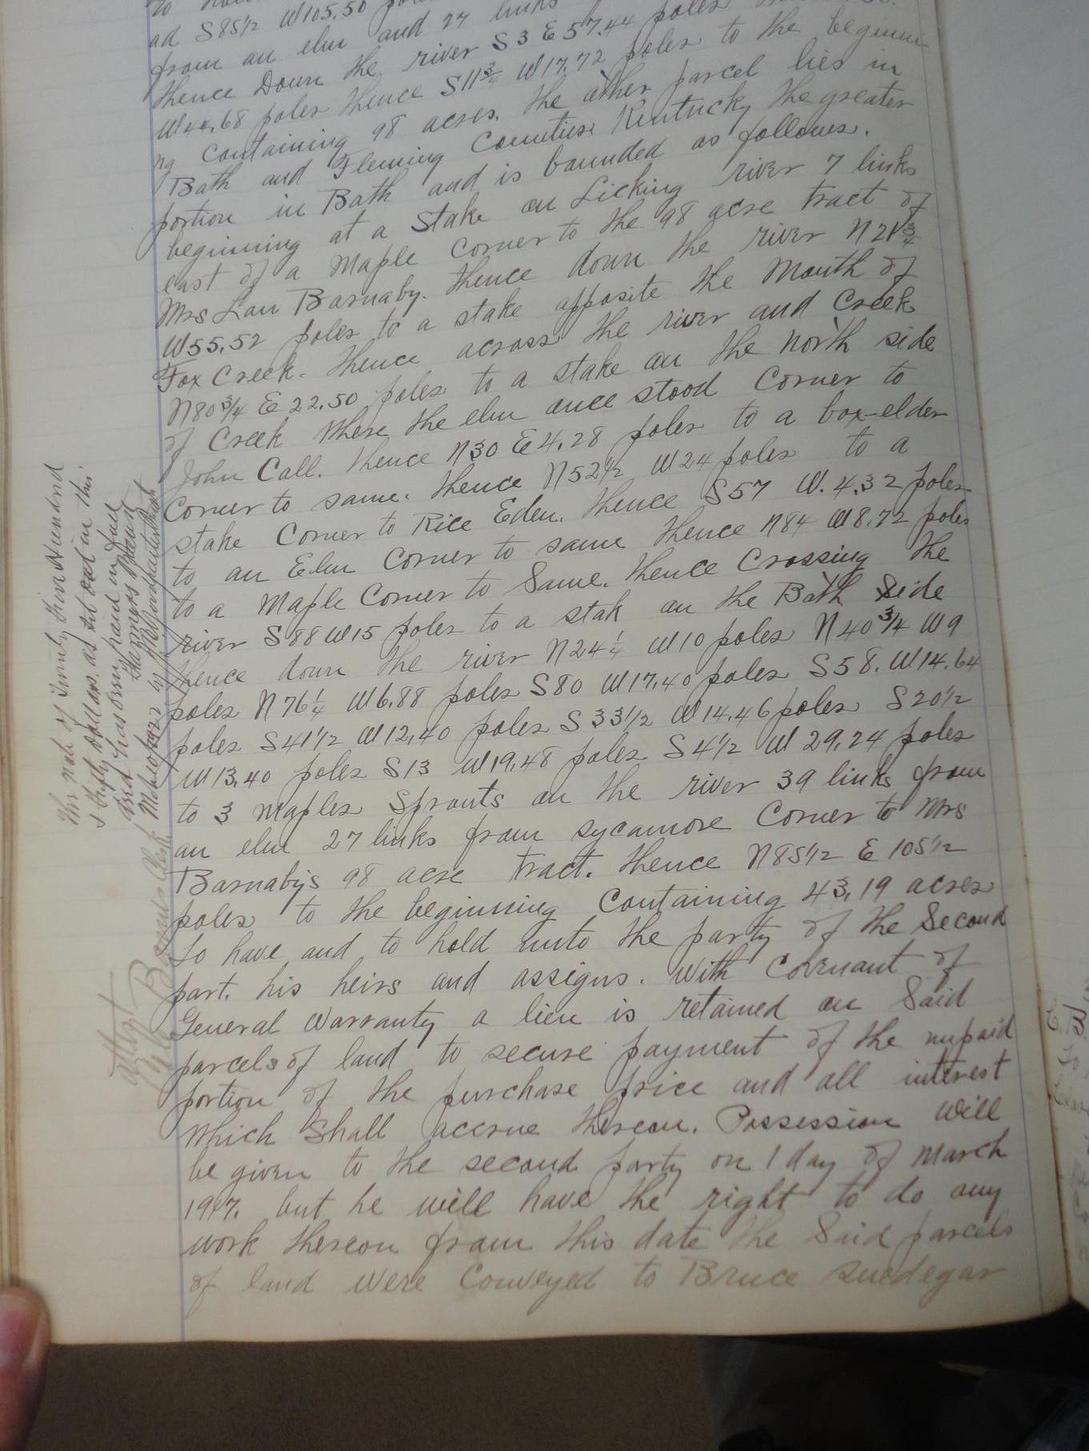 ad S85½ W105.50
from an elm and 27 links
thence Down the river S3 E57.44 poles
W44.68 poles thence S11¾ W17.72 poles to the beginni
ng Containing 98 acres. the other parcel lies in
Bath and Fleming Counties Kentucky the greater
portion in Bath and is bounded as follows.
beginning at a Stake on Licking river 7 links
east of a Maple Corner to the 98 acre tract of
Mrs Lou Barnaby. thence down the river N21¾
W55.52 poles to a stake opposite the Mouth of
Fox Creek. thence across the river and Creek
N80¾ E22.50 poles to a stake on the North side
of Creek Where the elm once stood Corner to
John Call. thence N30 E4.28 poles to a box-elder
Corner to same. thence N52½ W24 poles to a
stake Corner to Rice Eden. thence S57 W.4.32 poles
to an Elm Corner to same thence N84 W8.72 poles
to a Maple Corner to Same. thence Crossing the
river S88 W15 poles to a stak on the Bath Side
thence down the river N24¼ W10 poles N40¾ W9
poles N76¼ W6.88 poles S80 W17.40 poles S58. W14.64
poles S41½ W12.40 poles S33½ W14.46 poles S20½
W13.40 poles S13 W19.48 poles S4½ W29.24 poles
to 3 Maples Sprouts on the river 39 links from
an elm 27 links from sycamore Corner to Mrs
Barnabys 98 acre tract. thence N85½ E 105½
poles to the beginning Containing 43.19 acres
To have and to hold unto the party of the Second
part. his heirs and assigns. With Covenant of
General Warranty a lien is retained on Said
parcels of land to secure payment of the unpaid
portion of the purchase price and all interest
Which Shall accrue thereon. Possession Will
be given to the second party on 1 day of March
1917. but he will have the right to do any
work thereon from this date the Said parcels
of land were Conveyed to Bruce Suedegar